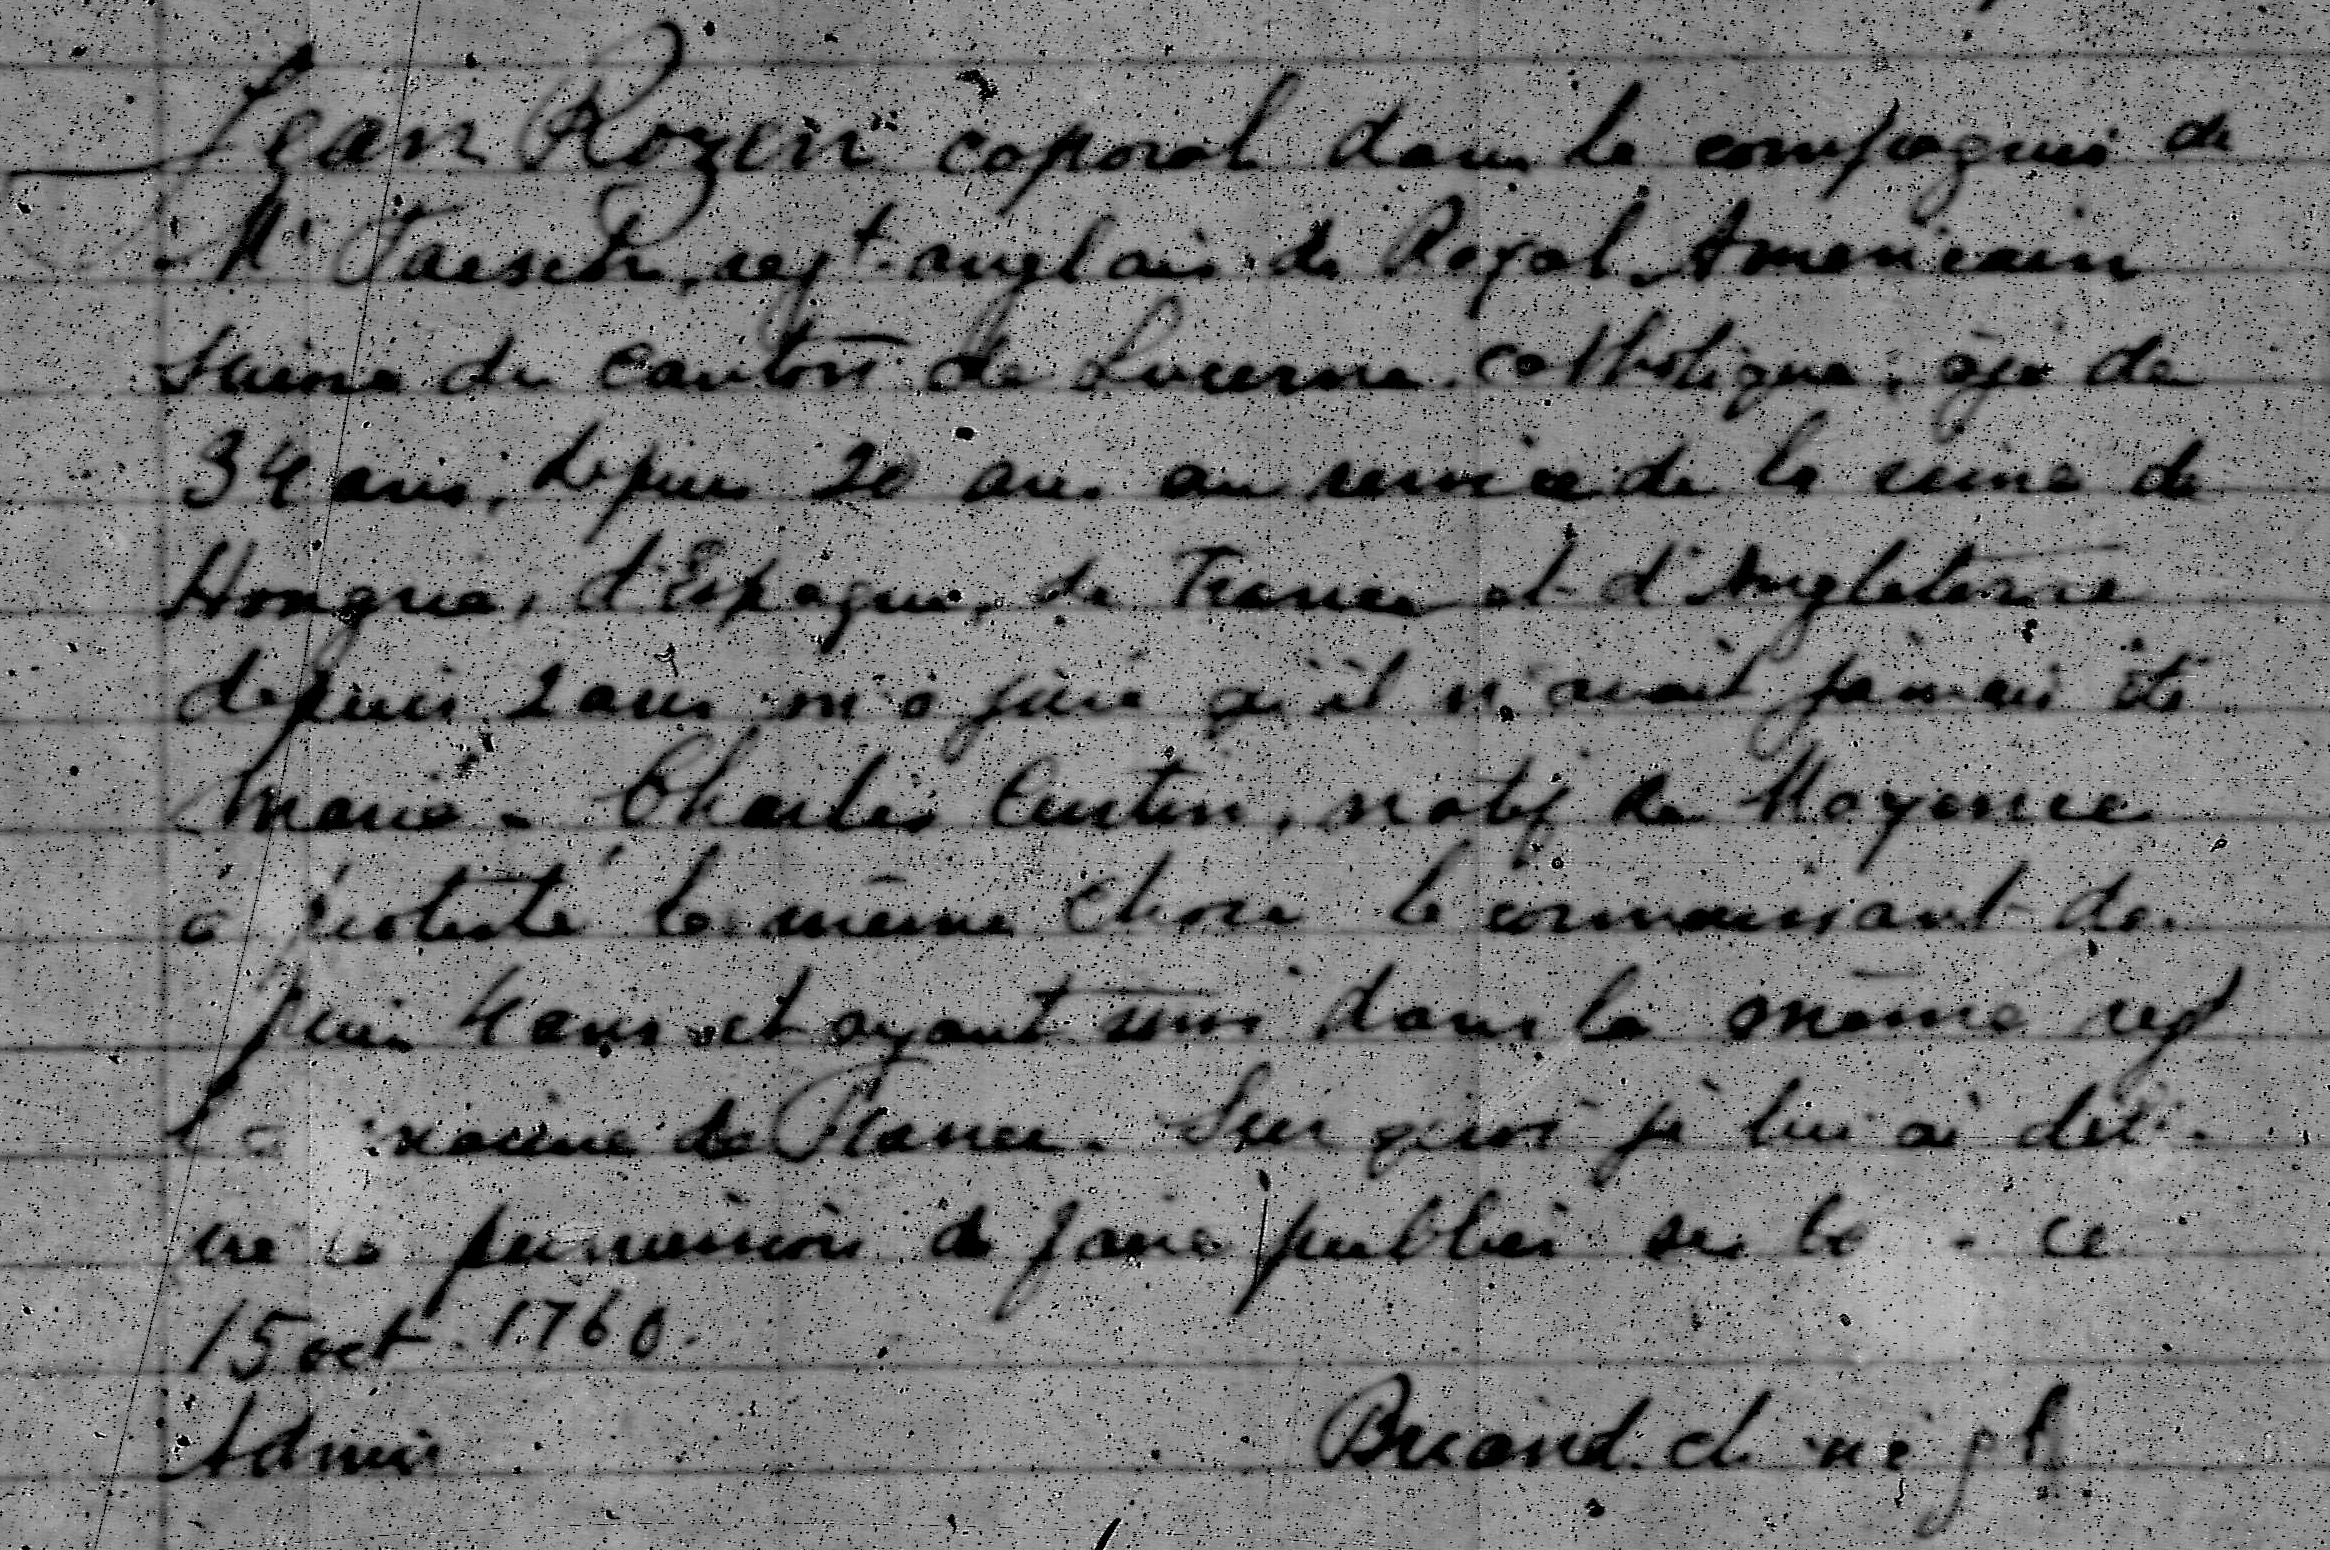 Jean Rozen caporal dans la compagnie de
Mr Faesch, regt. anglais de Royal Americain
suisse du canton de Lucerne. catholique, âgé de
34 ans, depuis 20 ans au service de la reine de
Hongrie, d'Espagne, de France et d'Angleterre
depuis 2 ans m'a juré qu'il n'avait jamais été
marié. Charles Custin, natif de Mayence
a protesté la même chose le connaissant de
puis 4 ans et ayant servi dans le même regt
la marine de France. Sur quoi je lui ai déli
vré la permission de faire publier ses ce
15 oct. 1760.
Admis Briand. ch. gl